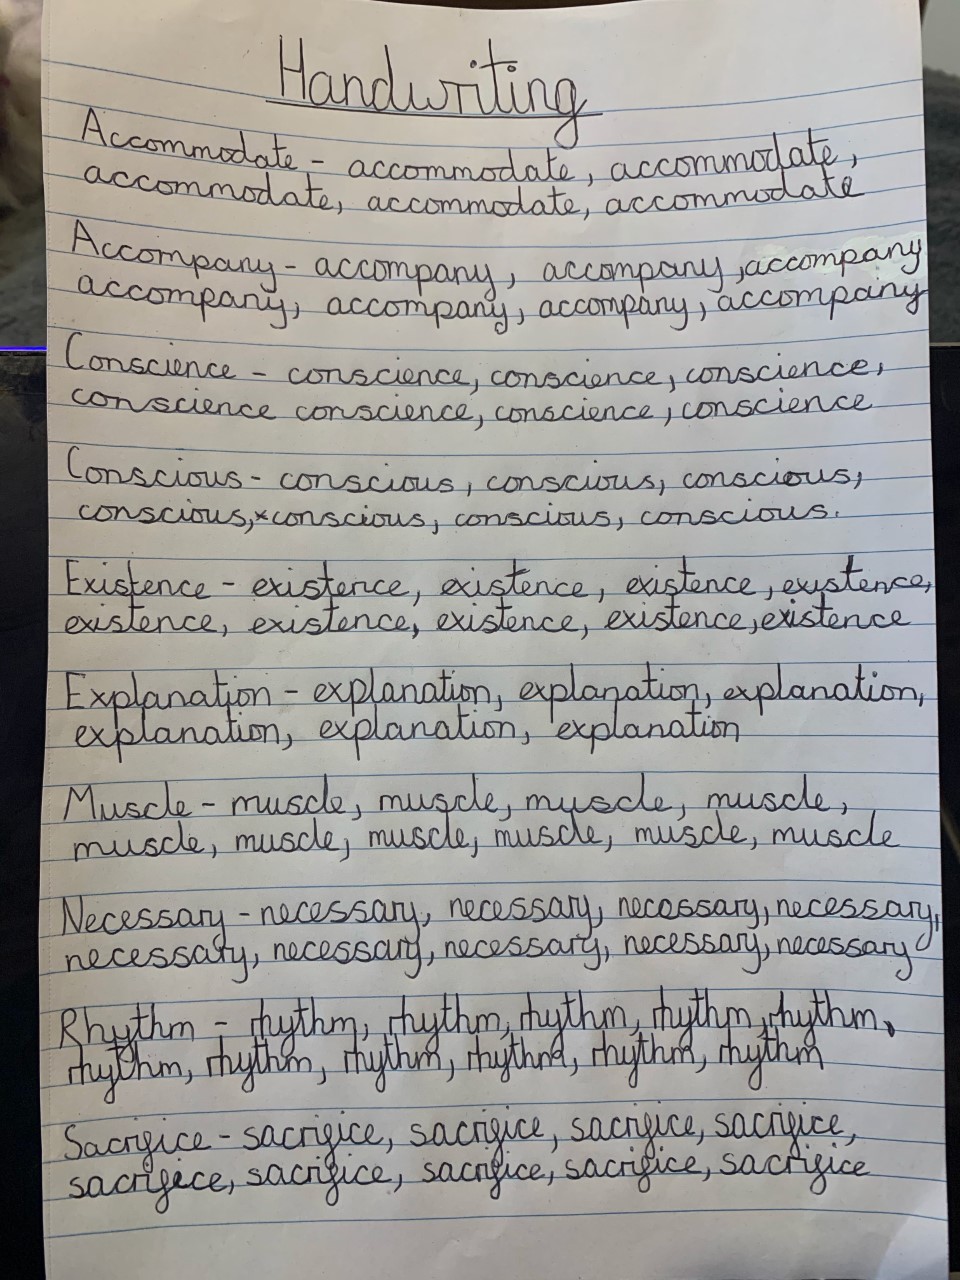 Handwriting
Accommodate - accommodate, accommodate,
accommodate, accommodate, accommodate
Accompany - accompany, accompany, accompany
accompany, accompany, accompany, accompany
Conscience - conscience, conscience, conscience,
conscience conscience, conscience, conscience
Conscious - conscious, conscious, conscious,
conscious, conscious, conscious, conscious.
Existence - existence, existence, existence, existence,
existence, existence, existence, existence, existence
Explanation - explanation, explanation, explanation,
explanation, explanation, explanation
Muscle - muscle, muscle, muscle, muscle,
muscle, muscle, muscle, muscle, muscle, muscle
Necessary - necessary, necessary, necessary, necessary,
necessary, necessary, necessary, necessary, necessary
Rhythm - rhythm, rhythm, rhythm, rhythm, rhythm,
rhythm, rhythm, rhythm, rhythm, rhythm, rhythm
Sacrifice - sacrifice, sacrifice, sacrifice, sacrifice,
sacrifice, sacrifice, sacrifice, sacrifice, sacrifice